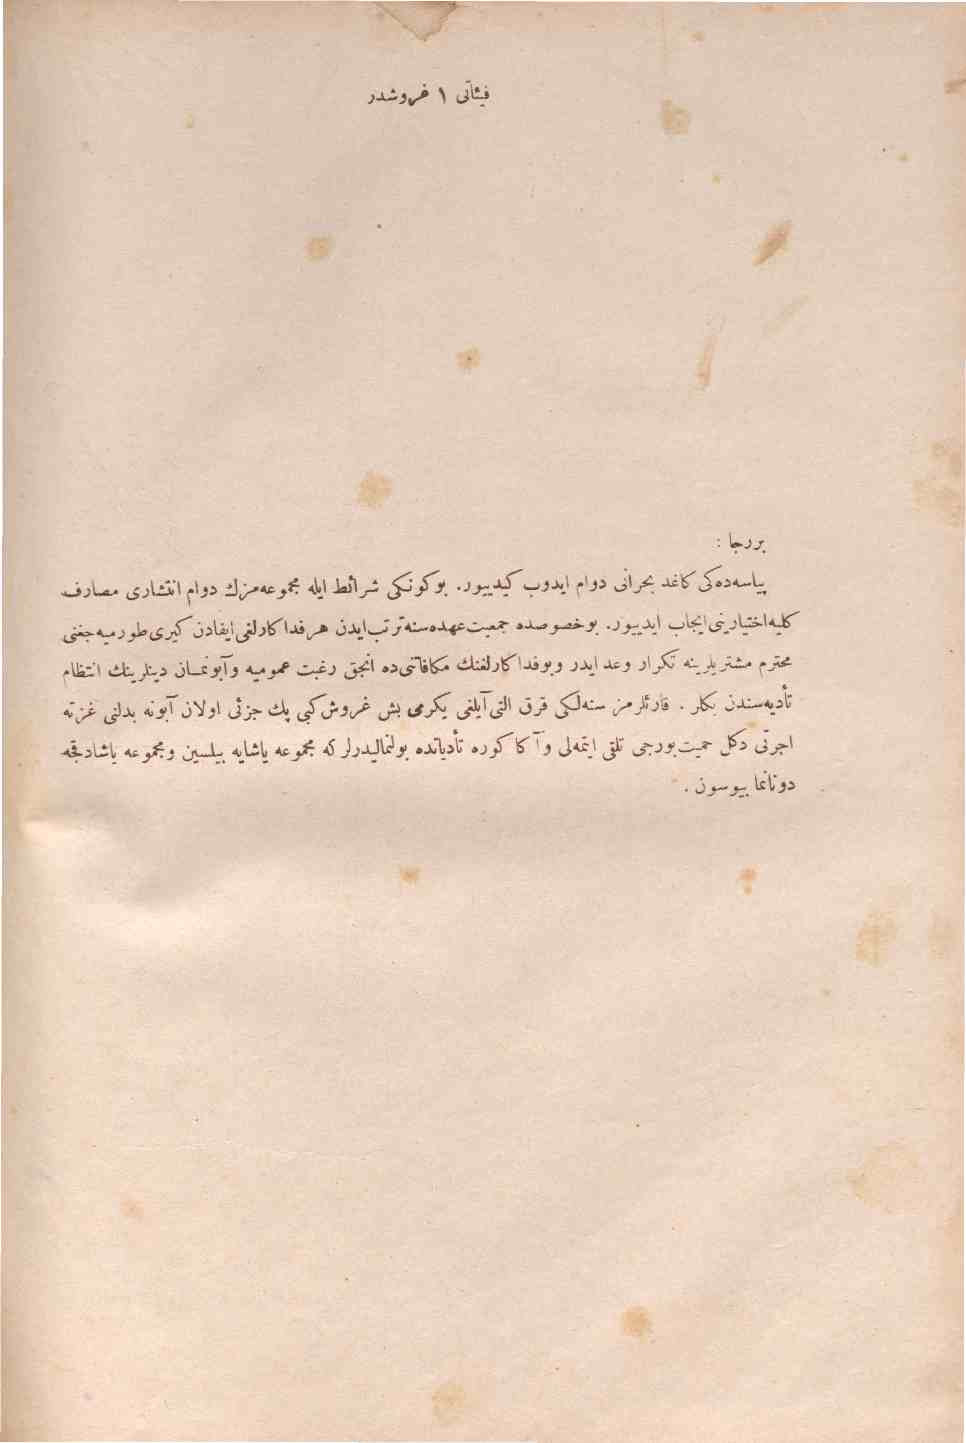 فیئاتی ١ غروشدر
بررجا :
پیاسه‌ده‌کی کاغد بحرانی دوام ایدوب کیدییور. بوکونکی شرائط ایله مجموعه‌مزك دوام انتشاری مصارف
کلیه‌اختیارینی ایجاب ایدییور. بوخصوصده جمعیت‌عهده‌سنه‌ترتب‌ایدن هرفداکارلغی‌ایفادن کیری‌طورمیه‌جغنی
محترم مشتریلرینه تکرار وعد ایدر وبوفداکارلغنك مکافاتنی‌ده انجق رغبت عمومیه وآبونمـان دینلرینك انتظام
تأدیه‌سندن بکلر . قارئلرمز سنه‌لکی قرق التی‌آیلغی یکرمی بش غروش کبی پك جزئی اولان آبونه بدلنی غزته
اجرتی دکل حمیت‌بورجی تلقی ایتمه‌لی وآ کا کوره تأدیاتده بولنمالیدرلر که مجموعه یاشایه بیلسین ومجموعه یاشادقجه
دونانما بیوسون .